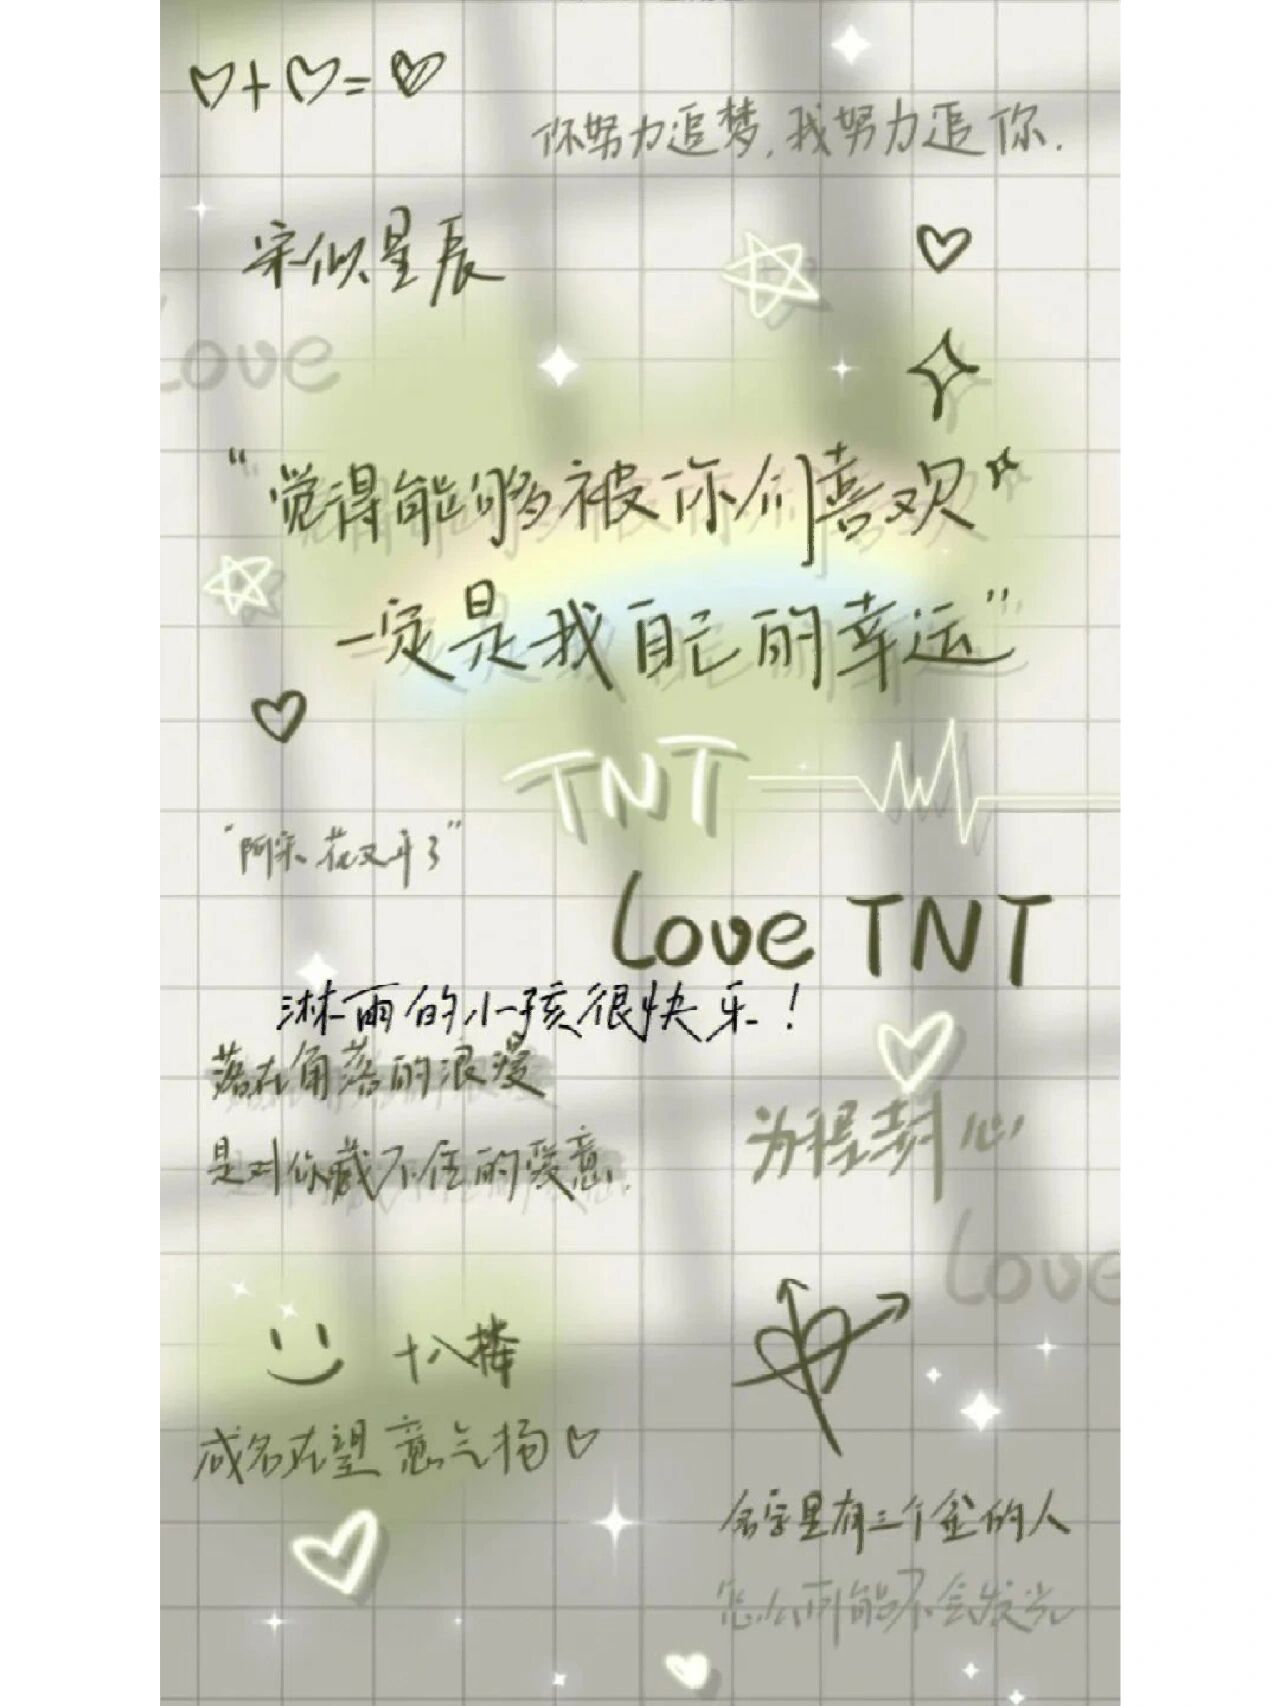 你努力追梦,我努力追你.
宋似星辰
Love
“觉得能够被你们喜欢
一定是我自己的幸运”
TNT
“阿宋 花又开了”
Love TNT
淋雨的小孩很快乐!
落在角落的浪漫
是对你藏不住的爱意.
为程封心
Love
十八楼
成名在望 意气扬
名字里有三个金的人
怎么可能不会发光